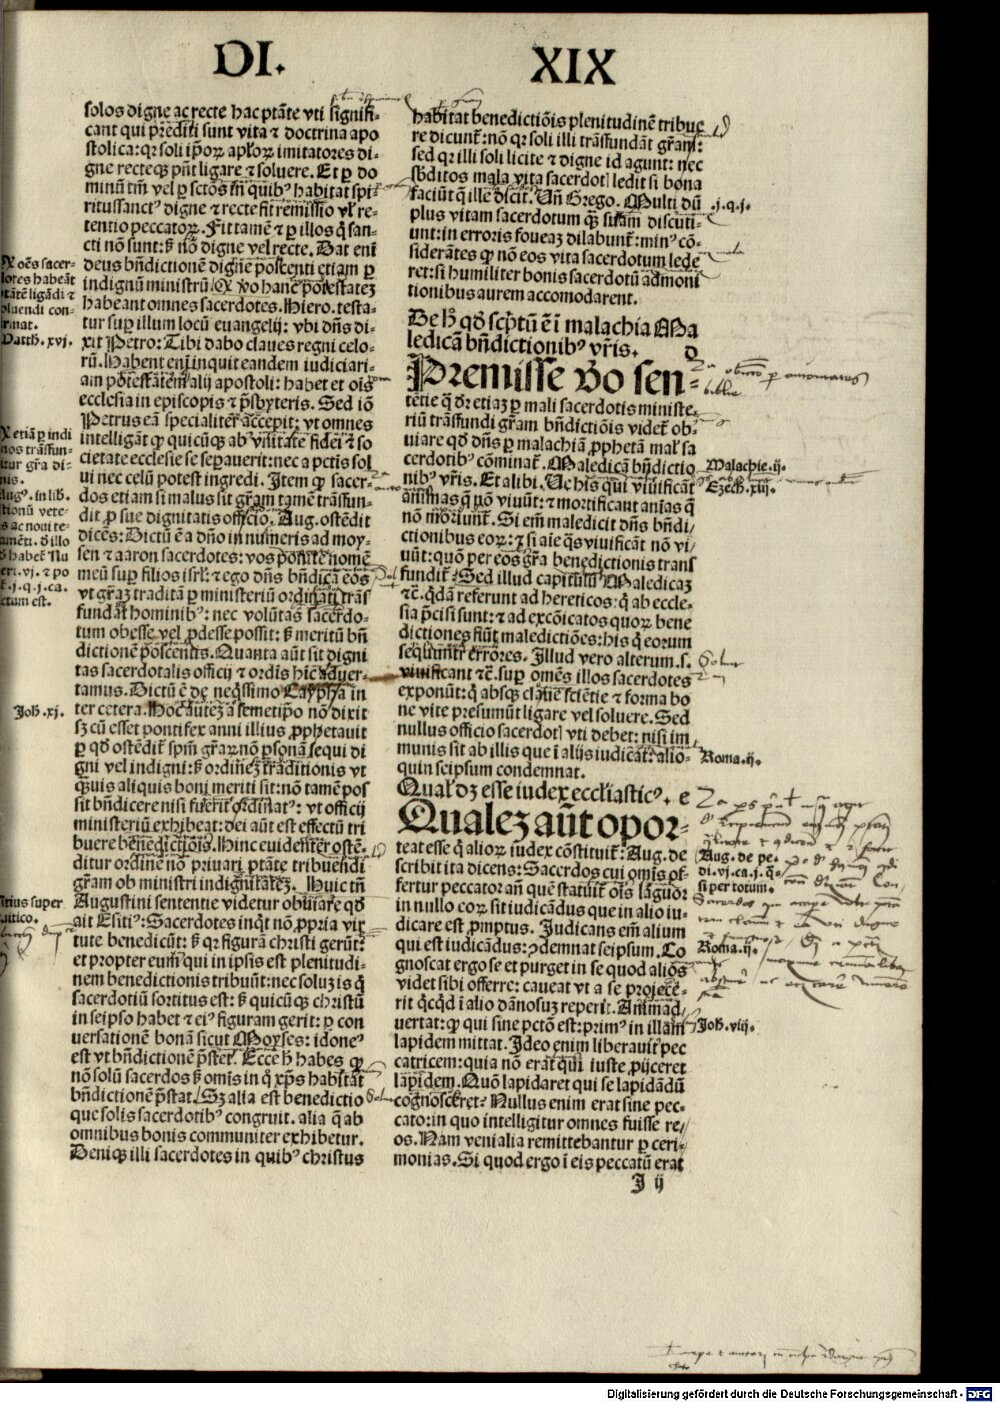 DI. XIX
solos digne ac recte hac ptāte vti signifi-
cant qui prediti sunt vita ⁊ doctrina apo
stolica: qꝛ soli ipoꝝ aploꝝ imitatores di-
gne recteqꝫ pn̄t ligare ⁊ soluere. Et p do
minū tm̄ vel p sctōs in quibꝰ habitat spi-
ritussanctꝰ digne ⁊ recte fit remissio vl̓ re-
tentio peccatoꝝ. Fit tamē ⁊ p illos q̄ san-
cti nō sunt: sꝫ nō digne vel recte. Dat eni
deus bn̄dictionē digne poscenti etiam p
indignū ministrū. Q vo hanc potestatez
habeant omnes sacerdotes. Hiero. testa-
tur sup illum locū euangelij: vbi dn̄s di-
xit Petro: Tibi dabo claues regni celo-
rū. Habent em̄ inquit eandem iudiciari-
am potestatem alij apostoli: habet et oīs
ecclesia in episcopis ⁊ p̄sbyteris. Sed iō
Petrus eā specialiter accepit: vt omnes
intelligāt ꝙ quicūqꝫ ab vnitate fidei ⁊ so
cietate ecclesie se sepauerit: nec a pctīs sol
ui nec celū potest ingredi. Item ꝙ sacer-
dos etiam si malus sit grām tamē trāsfun-
dit p sue dignitatis officio. Aug. ostēdit
dicēs: Dictū ē a dn̄o in numeris ad moy-
sen ⁊ aaron sacerdotes: vos ponite nomē
meū sup filios isrl̓: ⁊ ego dn̄s bn̄dicā eos
vt grāꝫ traditā p ministeriū ordinati trās
fundat hominibꝰ: nec volūtas sacerdo-
tum obesse vel pdesse possit: sꝫ meritū bn̄
dictionē poscentis. Quanta aūt sit digni
tas sacerdotalis officij ⁊ ordīs hic aduer-
tamus. Dictū ē de neqͥssimo Caypha in
ter cetera. Hoc autē a semetipo nō dixit
sꝫ cū esset pontifex anni illius pphetauit
p qd̓ ostēdit̓ spm̄ grāꝝ nō psonā sequi di
gni vel indigni: sꝫ ordinē traditionis vt
qͣuis aliquis boni meriti sit: nō tamē pos
sit bn̄dicere nisi fuerit ordinatꝰ: vt officij
ministeriū exhibeat: dei aūt est effectū tri
buere benedictiōis. Hinc euidenter ostē-
ditur ordinē nō priuari ptāte tribuendi
grām ob ministri indignitatē. Huic tn̄
Augustini sentētie videtur obuiare qd̓
ait Esitiꝰ: Sacerdotes inqͥt nō ppria vir
tute benedicūt: sꝫ qꝛ figurā christi gerūt:
et propter eum qui in ipsis est plenitudi-
nem benedictionis tribuūt: nec soluꝫ is q̄
sacerdotiū sortitus est: sꝫ quicūqꝫ christū
in seipso habet ⁊ eiꝰ figuram gerit: p con
uersationē bonā sicut Moyses: idoneꝰ
est vt bn̄dictionē p̄stet. Ecce h̓ habes ꝙ
nō solū sacerdos sꝫ omīs in q̄ xp̄s habitat
bn̄dictionē p̄stat. Sꝫ alia est benedictio
que solis sacerdotibꝰ congruit. alia q̄ ab
omnibus bonis communiter exhibetur.
Deniqꝫ illi sacerdotes in quibꝰ christus
Q oēs sacer-
dotes habeāt
ptātē ligādi ⁊
soluendi con-
firmat.
Matth. xvj.
Q etiā p indi
gnos trāsfun-
ditur grā di-
nis.
Aug. in lib.
Joh. xj.
habitat benedictiōis plenitudinē tribue
re dicunt̓: nō qꝛ soli illi trāsfundāt grāꝫ:
sed qꝛ illi soli licite ⁊ digne id agunt: nec
sb̓ditos mala vita sacerdotꝭ ledit si bona
faciūt q̄ ille dicit. Vn̄ Grego. Multi dū
plus vitam sacerdotum qͣꝫ suam discuti-
unt: in erroris foueaꝫ dilabunt̓: minꝰ cō-
siderātes ꝙ nō eos vita sacerdotum lede
ret: si humiliter bonis sacerdotū admoni
tionibus aurem accomodarent.
De h̓ qd̓ scp̄tū ē ī malachia Ma
ledicā bn̄dictionibꝰ vr̄is. D
Premisse vo sen-
tētie q̄ dꝛ etiaꝫ p mali sacerdotis ministe-
riū trāsfundi grām bn̄dictiōis videt̓ ob-
uiare qd̓ dn̄s p malachiā pphetā mal̓ sa
cerdotibꝰ cōminat̓. Maledicā bn̄dictio
nibꝰ vr̄is. Et alibi. Ve his qui viuificāt
animas q̄ nō viuūt: ⁊ mortificant anīas q̄
nō moriunt̓. Si em̄ maledicit dn̄s bn̄di-
ctionibus eoꝝ: ⁊ si aīe qͣs viuificāt nō vi-
uūt: quō per eos grā benedictionis trans
fundit̓? Sed illud capitulū Maledicaꝫ
⁊c. qͥdā referunt ad hereticos: q̄ ab eccle-
sia p̄cisi sunt: ⁊ ad excōicatos quoꝝ bene
dictiones fiūt maledictiōes: his q̄ eorum
sequunt̓ errores. Illud vero alterum .s.
viuificant ⁊c. sup omēs illos sacerdotes
exponūt: q̄ absqꝫ claue sciētie ⁊ forma bo
ne vite presumūt ligare vel soluere. Sed
nullus officio sacerdotꝭ vti debet: nisi im
munis sit ab illis que ī alijs iudicat: alio-
quin seipsum condemnat.
Qual̓ dꝫ esse iudex eccl̓iasticꝰ. e
Qualeꝫ aūt opor-
teat esse q̄ alioꝝ iudex cōstituit̓: Aug. de
scribit ita dicens: Sacerdos cui omīs of-
fertur peccator añ que statuit̓ oīs lāguor
in nullo eoꝝ sit iudicādus que in alio iu-
dicare est pmptus. Judicans em̄ alium
qui est iudicādus: ↄdemnat seipsum. Co
gnoscat ergo se et purget in se quod alios
videt sibi offerre: caueat vt a se projece-
rit qͥcqͥd ī alio dānosuꝫ reperit. Animad-
uertat: ꝙ qui sine pctō est: primꝰ in illam
lapidem mittat. Ideo enim liberauit pec
catricem: quia non erat qui iuste pijceret
lapidem. Quō lapidaret qui se lapidādū
cognosceret? Nullus enim erat sine pec-
cato: in quo intelligitur omnes fuisse re-
os. Nam venialia remittebantur p ceri-
monias. Si quod ergo ī eis peccatū erat
.j.q.j.
Malachie.ij.
Ezech. xiij.
Roma.ij.
Aug. de pe.
di.vj.ca.j.q.
si per totum.
Roma.ij.
Joh. viij.
I ij
Digitalisierung gefördert durch die Deutsche Forschungsgemeinschaft - DFG